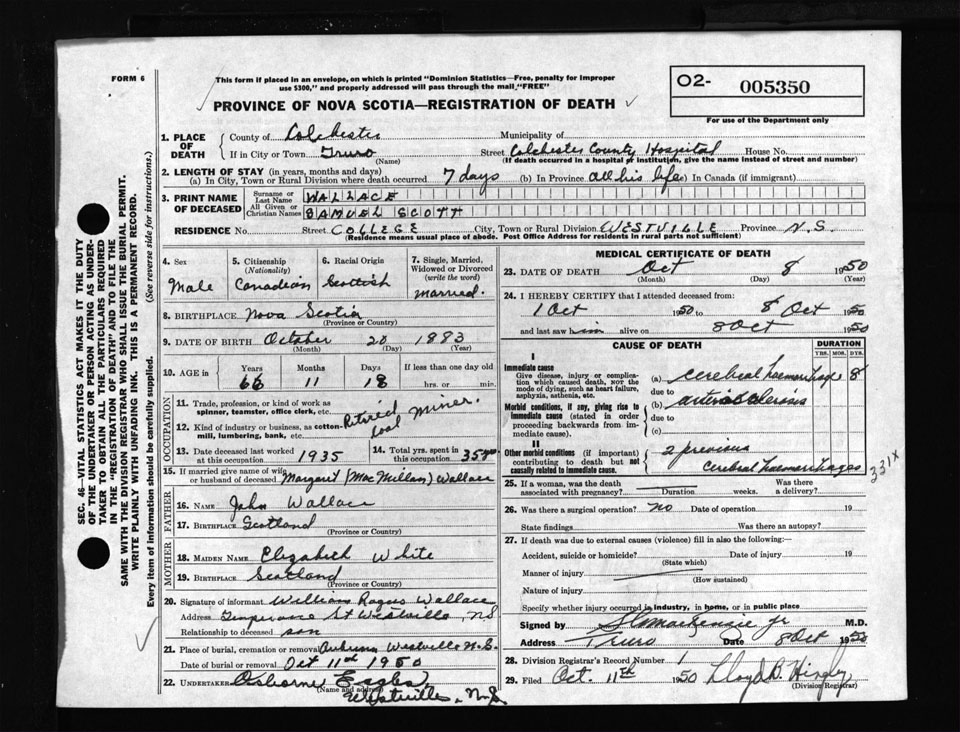 FORM 6
This form if placed in an envelope, on which is printed "Dominion Statistics—Free, penalty for improper
use $300," and properly addressed will pass through the mail "FREE"
O2- 005350
For use of the Department only
PROVINCE OF NOVA SCOTIA—REGISTRATION OF DEATH
1. PLACE OF DEATH
County of Colchester Municipality of
If in City or Town Truro Street Colchester County Hospital House No.
(Name) (If death occurred in a hospital or institution, give the name instead of street and number)
2. LENGTH OF STAY (in years, months and days)
(a) In City, Town or Rural Division where death occurred 7 days (b) In Province all his life (c) In Canada (if immigrant)
3. PRINT NAME OF DECEASED
Surname or Last Name WALLACE
All Given or Christian Names SAMUEL SCOTT
RESIDENCE No. Street COLLEGE City, Town or Rural Division WESTVILLE Province N.S.
(Residence means usual place of abode. Post Office Address for residents in rural parts not sufficient)
4. Sex
Male
5. Citizenship
(Nationality)
Canadian
6. Racial Origin
Scottish
7. Single, Married,
Widowed or Divorced
(write the word)
Married.
8. BIRTHPLACE Nova Scotia
(Province or Country)
9. DATE OF BIRTH October 20 1883
(Month) (Day) (Year)
10. AGE in
Years Months Days If less than one day old
66 11 18 hrs. or min.
OCCUPATION
11. Trade, profession or kind of work as
spinner, teamster, office clerk, etc. Retired Miner.
12. Kind of industry or business, as cotton-
mill, lumbering, bank, etc. Coal
13. Date deceased last worked
at this occupation 1935
14. Total yrs. spent in
this occupation 35 yrs
15. If married give name of wife
or husband of deceased Margaret (MacMillan) Wallace
FATHER
16. Name John Wallace
17. Birthplace Scotland
(Province or Country)
MOTHER
18. Maiden Name Elizabeth White
19. Birthplace Scotland
(Province or Country)
20. Signature of informant William Wallace
Address Temperance St Westville, NS
Relationship to deceased son
21. Place of burial, cremation or removal Auburn Westville N.S.
Date of burial or removal Oct 11th 1950
22. Undertaker Osborne Eagles
(Name and address)
Westville, N.S.
MEDICAL CERTIFICATE OF DEATH
23. DATE OF DEATH Oct 8 1950
(Month) (Day)
24. I HEREBY CERTIFY that I attended deceased from:
1 Oct 1950 to 8 Oct 1950
and last saw him alive on 8 Oct 1950
CAUSE OF DEATH
DURATION
YRS. MOS. DYS.
I
Immediate cause
Give disease, injury or compli-
cation which caused death, not the
mode of dying, such as heart failure,
asphyxia, asthenia, etc.
(a) cerebral haemorrhage 8
due to
Morbid conditions, if any, giving rise to
immediate cause (stated in order
proceeding backwards from im-
mediate cause).
(b) arteriosclerosis
due to
(c)
II
Other morbid conditions (if important)
contributing to death but not
causally related to immediate cause.
2 previous
cerebral haemorrhages
331X
25. If a woman, was the death
associated with pregnancy? Duration weeks. Was there a delivery?
26. Was there a surgical operation? no Date of operation 19
State findings Was there an autopsy?
27. If death was due to external causes (violence) fill in also the following:
Accident, suicide or homicide? Date of injury 19
(State which)
Manner of injury
(How sustained)
Nature of injury
Specify whether injury occurred in industry, in home, or in public place
Signed by MacKenzie Jr M.D.
Address Truro Date 8 Oct 1950
28. Division Registrar's Record Number 1
29. Filed Oct. 11th 1950 Lloyd
(Division Registrar)
SEC. 46—VITAL STATISTICS ACT MAKES IT THE DUTY
OF THE UNDERTAKER OR PERSON ACTING AS UNDER-
TAKER TO OBTAIN ALL THE PARTICULARS REQUIRED
IN THE "REGISTRATION OF DEATH" AND TO FILE THE
SAME WITH THE DIVISION REGISTRAR WHO SHALL ISSUE THE BURIAL PERMIT.
WRITE PLAINLY WITH UNFADING INK. THIS IS A PERMANENT RECORD.
Every item of information should be carefully supplied. (See reverse side for instructions.)